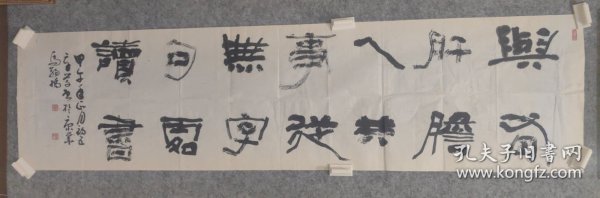 與有
肝膽
人共
事從
無字
句處
讀書
甲午年正月
孔夫子旧书网
www.kongfz.com